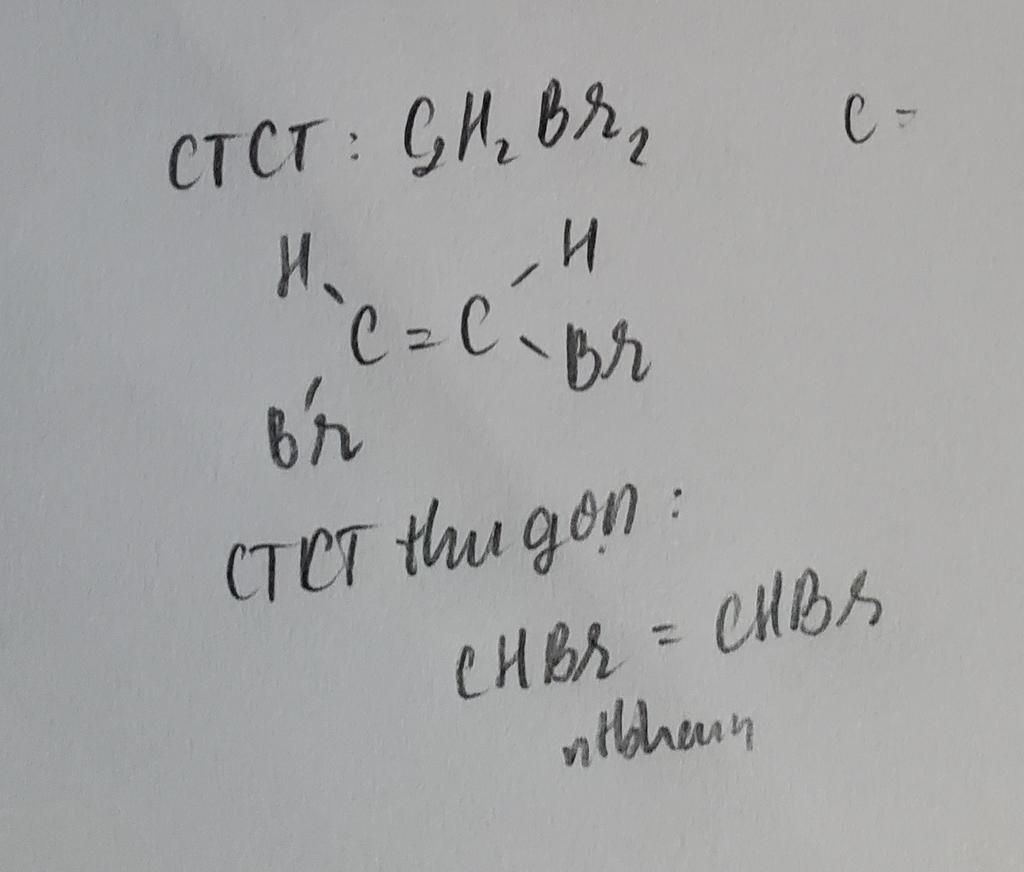 CTCT : C₂H₂Br₂ C =
H H
C = C
Br Br
CTCT thu gọn :
CHBr = CHBr